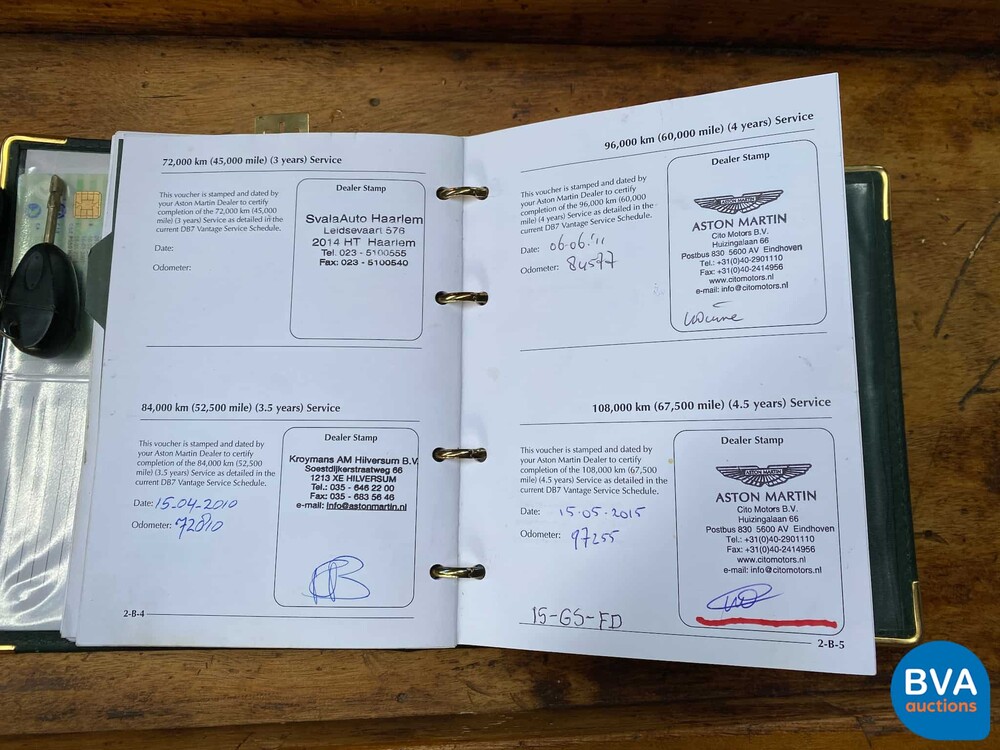 72,000 km (45,000 mile) (3 years) Service
This voucher is stamped and dated by
your Aston Martin Dealer to certify
completion of the 72,000 km (45,000
mile) (3 years) Service as detailed in the
current DB7 Vantage Service Schedule.
Date:
Odometer:
Dealer Stamp
SvalaAuto Haarlem
Leidsevaart 576
2014 HT Haarlem
Tel: 023 - 5100555
Fax: 023 - 5100540
84,000 km (52,500 mile) (3.5 years) Service
This voucher is stamped and dated by
your Aston Martin Dealer to certify
completion of the 84,000 km (52,500
mile) (3.5 years) Service as detailed in the
current DB7 Vantage Service Schedule.
Date: 15-04-2010
Odometer: 72810
Dealer Stamp
Kroymans AM Hilversum B.V.
Soestdijkerstraatweg 66
1213 XE HILVERSUM
Tel.: 035 - 646 22 00
Fax: 035 - 683 56 46
e-mail: info@astonmartin.nl
2-B-4
96,000 km (60,000 mile) (4 years) Service
This voucher is stamped and dated by
your Aston Martin Dealer to certify
completion of the 96,000 km (60,000
mile) (4 years) Service as detailed in the
current DB7 Vantage Service Schedule.
Date: 06.06.'11
Odometer: 84577
Dealer Stamp
ASTON MARTIN
ASTON MARTIN
Cito Motors B.V.
Huizingalaan 66
Postbus 830 5600 AV Eindhoven
Tel.: +31(0)40-2901110
Fax: +31(0)40-2414956
www.citomotors.nl
e-mail: info@citomotors.nl
108,000 km (67,500 mile) (4.5 years) Service
This voucher is stamped and dated by
your Aston Martin Dealer to certify
completion of the 108,000 km (67,500
mile) (4.5 years) Service as detailed in the
current DB7 Vantage Service Schedule.
Date: 15.05.2015
Odometer: 97255
Dealer Stamp
ASTON MARTIN
ASTON MARTIN
Cito Motors B.V.
Huizingalaan 66
Postbus 830 5600 AV Eindhoven
Tel.: +31(0)40-2901110
Fax: +31(0)40-2414956
www.citomotors.nl
e-mail: info@citomotors.nl
15-GS-FD
2-B-5
BVA
auctions